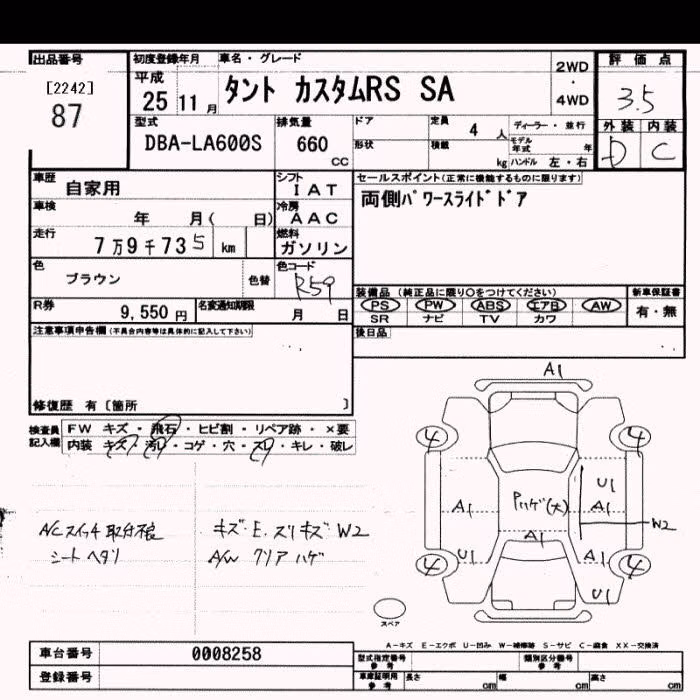 出品番号 初度登録年月 車名・グレード 2WD・4WD 評価点
[2242]
87
平成
25 11月 タント カスタムRS SA 3.5
型式 排気量 ドア 定員 4人 ディーラー・並行 外装 内装
DBA-LA600S 660 CC 形状 積載 kg モデル年式 年 ハンドル 左・右 D C
車歴 自家用 シフト IAT セールスポイント(正常に機能するものに限ります)
車検 年 月( 日) 冷房 AAC 両側パワースライドドア
走行 7万9千735 km 燃料 ガソリン
色 ブラウン 色替 色コード R59
装備品 (純正品に限り○をつけてください) 新車保証書
PS PW ABS エアB AW 有・無
SR ナビ TV カワ
R券 9,550円 名変通知期限 月 日
後日品
注意事項申告欄(不具合内容等は具体的に記入して下さい)
修復歴 有 [箇所 ]
検査員記入欄 FW キズ・飛石・ヒビ割・リペア跡・×要
内装 キズ・汚レ・コゲ・穴・スレ・キレ・破レ
A/Cスイッチ取付
シートヘタリ
キズ・E.スリキズ W2
A/W クリアハゲ
A1
4 4
U1
A1 Pハゲ(大) A1
W2
A1
U1 A1
4 4
U1
スペア
A-キズ E-エクボ U-凹み W-補修跡 S-サビ C-腐食 XX-交換済
車台番号 0008258
登録番号
型式指定番号 参考 類別区分番号 参考
車庫証明用 参考 長さ cm 幅 cm 高さ cm